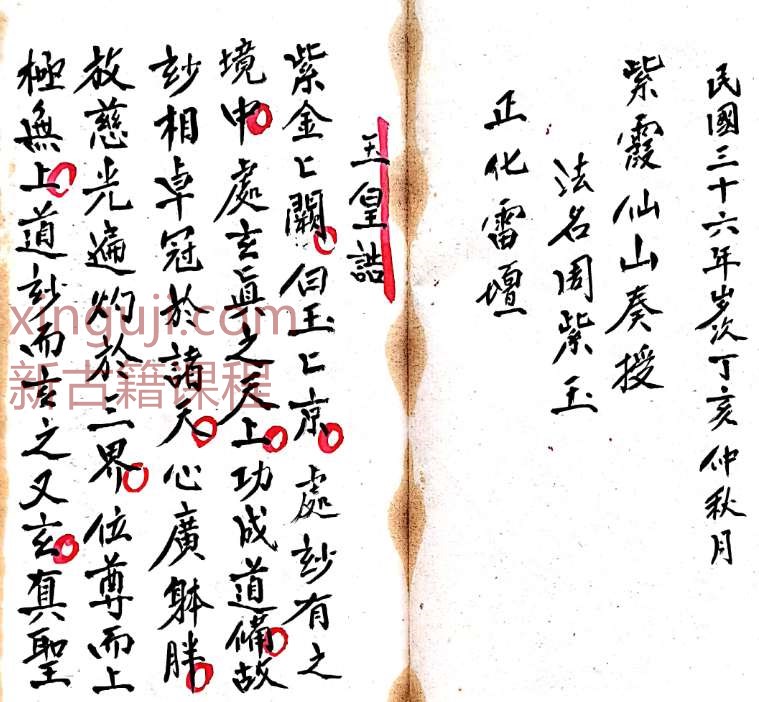 民國三十六年岁次丁亥仲秋月
紫霞仙山奏授
法名周紫玉
正化雷壇
玉皇誥
紫金匕闕白玉匕京處玅有之
境中處玄眞之天上功成道備故
玅相卓冠於諸天心廣躰胖
放慈光遍灼於三界位尊而上
極無上道玅而玄之又玄真聖
xinguji.com
新古籍课程